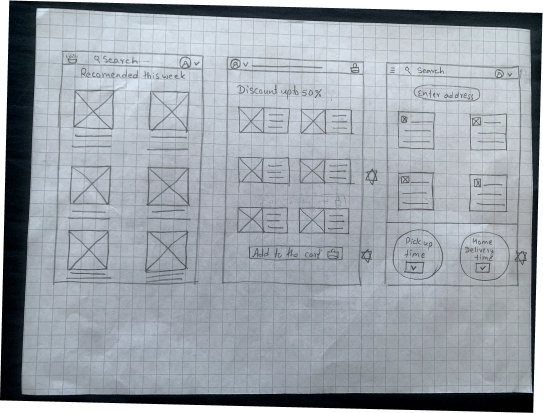 Search A
Recomended this week
A
Discount upto 50%
Add to the card
Search A
Enter address
Pick up
time
Home
Delivery
time